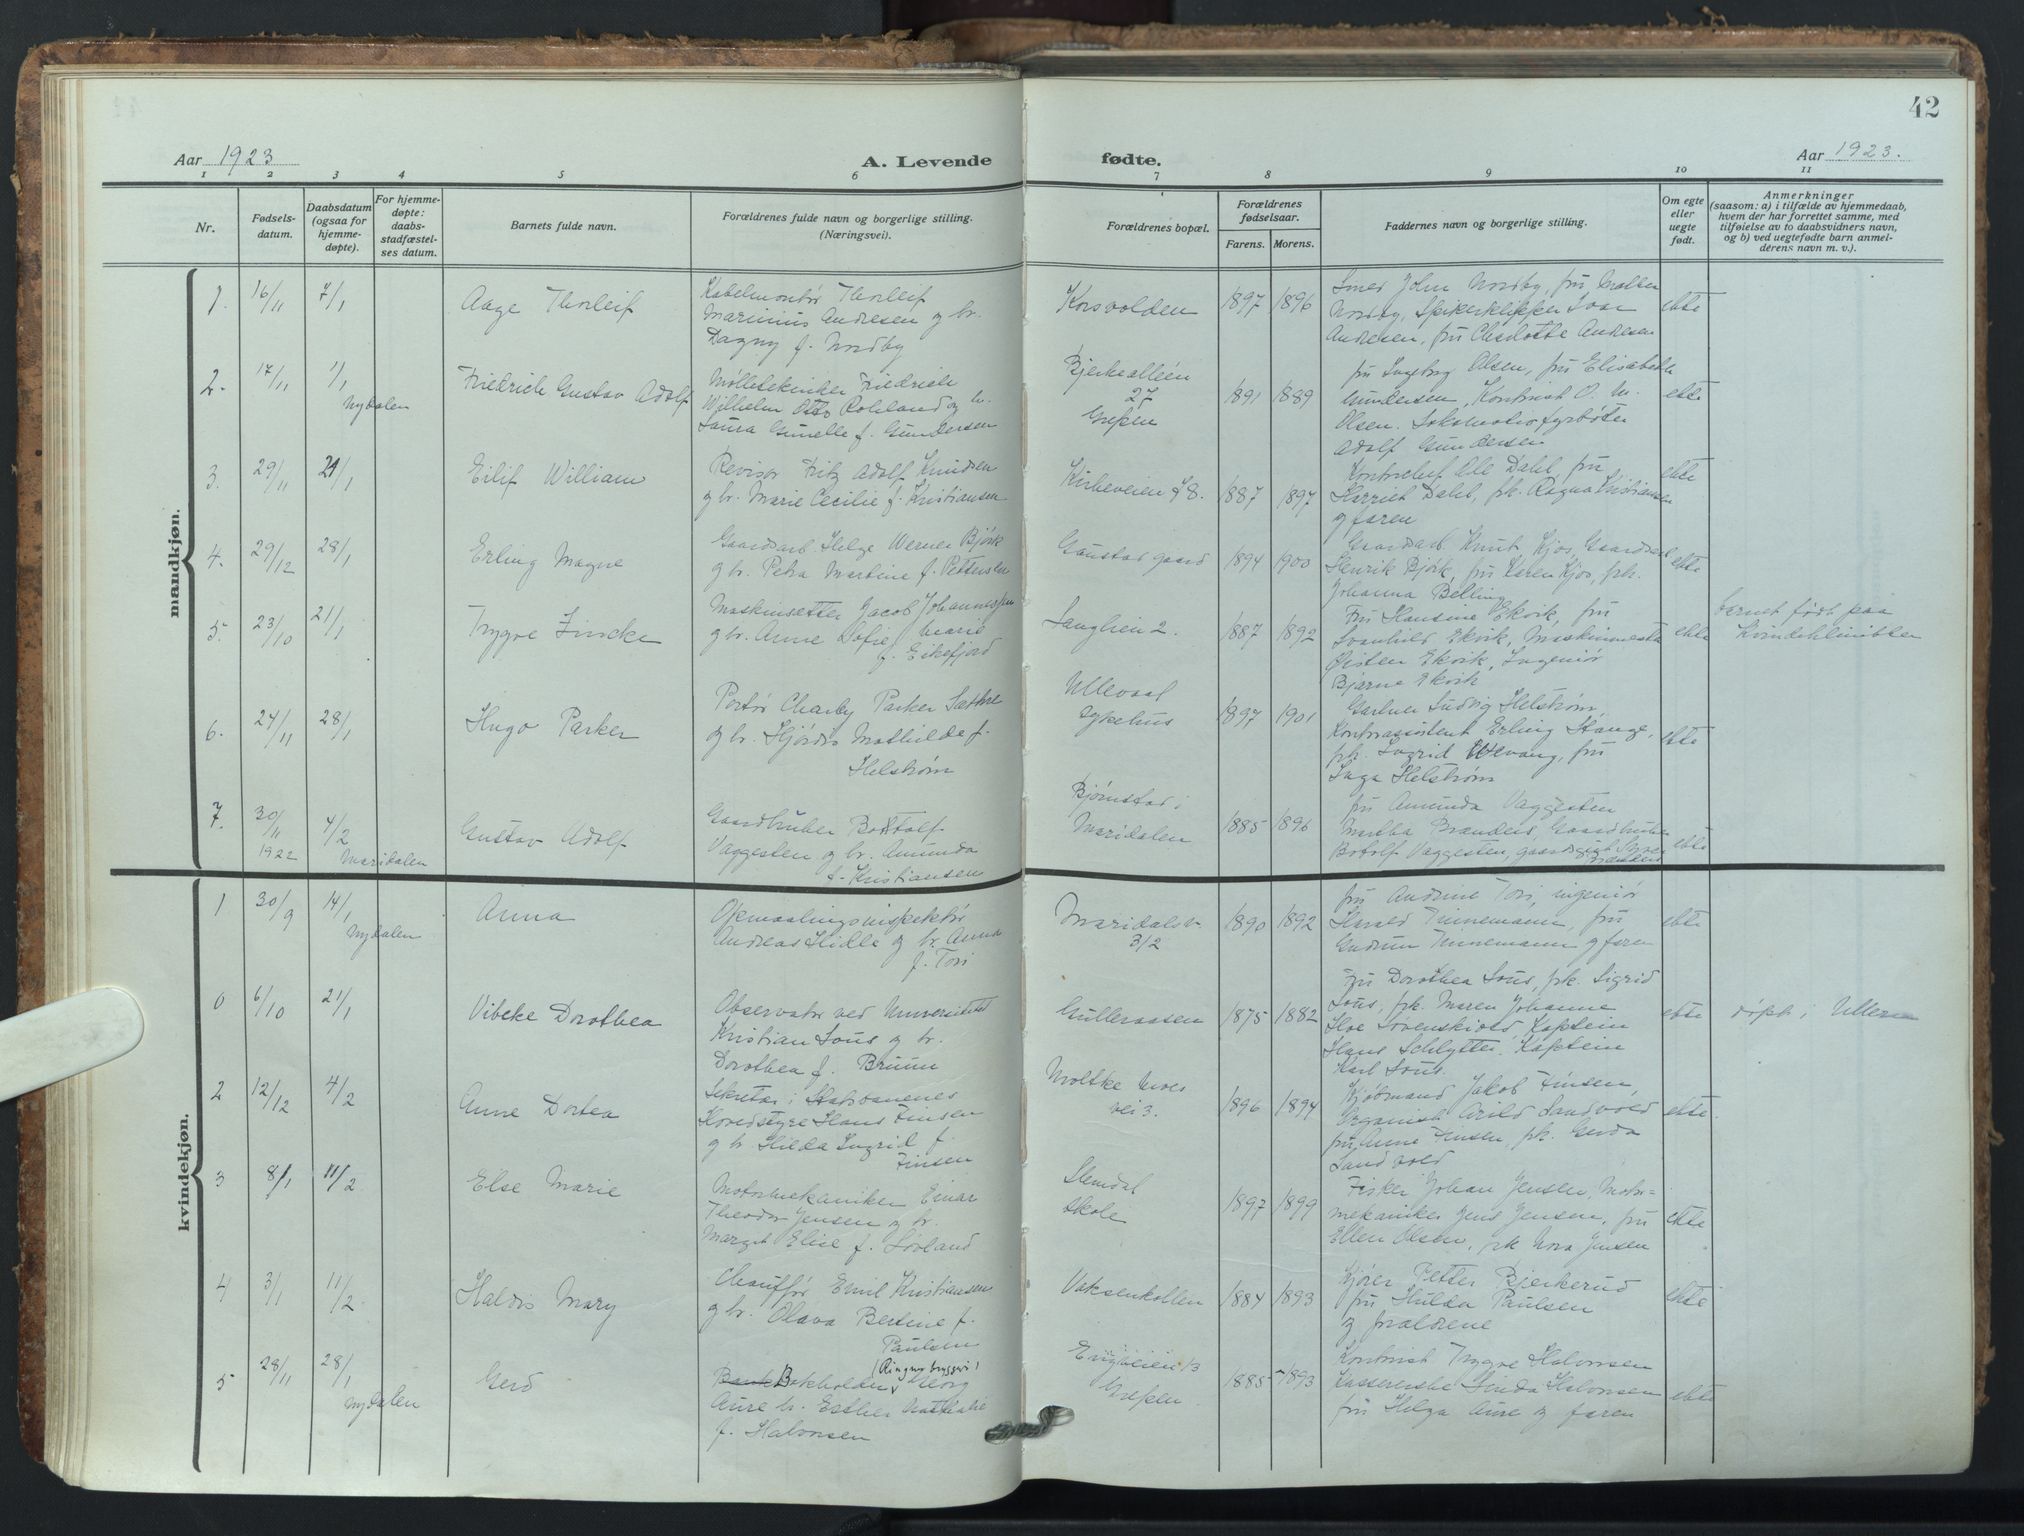 42
Aar 1923
A. Levende
fødte.
Aar 1923.
1 2 3 4 5 6 7 8 9 10 11
Nr.
Fødsels-
datum.
Daabsdatum
(ogsaa for
hjemme-
døpte).
For hjemme-
døpte:
daabs-
stadfæstel-
ses datum.
Barnets fulde navn.
Forældrenes fulde navn og borgerlige stilling.
(Næringsvei).
Forældrenes bopæl.
Forældrenes
fødselsaar.
Farens. Morens.
Faddernes navn og borgerlige stilling.
Om egte
eller
uegte
født.
Anmerkninger
(saasom: a) i tilfælde av hjemmedaab,
hvem der har forrettet samme, med
tilføielse av to daabsvidners navn,
og b) ved uegtefødte barn anmel-
derens navn m. v.).
mandkjøn.
1. 16/11 7/1
Aage Thorleif
Kabelmontør Thorleif
Marinius Andresen og hr.
Dagny f. Nordby
Korsvolden
1897 1896
Smed John Nordby, fru
Nordby, Ivar
Andresen, fru Charlotte Andresen
ekte
2. 17/11 1/1
Nydalen
Friedrich Gustav Adolf
Mølletekniker Friedrich
Wilhelm Otto Rohland og hr.
Laura Gunelle f. Gundersen
Bjerkealleen
27
Grefsen
1891 1889
fru Ingeborg Olsen, fru Elisabeth
Gundersen, Kontorist O. M.
Olsen. Lokomotivfyrbøter
Adolf Gundersen
ekte
3. 29/11 21/1
Eilif William
Revisor Fritz Adolf Knudsen
og hr. Marie Cecilie f. Kristiansen
Kirkeveien 98.
1887 1897
Kontorchef Ole Dahl, fru
Harriet Dahl, frk. Ragna Kristiansen
og faren
ekte
4. 29/12 28/1
Erling Magne
Gaardsarb. Helge Werner Björk
og hr. Petra Martine f. Pettersen
Gaustad gaard
1894 1900
Gaardsarb. Knut Kjos, Gaardsarb.
Henrik Björk, fru Karen Kjos, frk.
Johanna Belling
ekte
5. 23/10 21/1
Trygve Zincke
Maskinsetter Jacob Johannessen
og hr. Anne Sofie Marie
f. Eikefjord
Langlien 2.
1887 1892
Fru Hansine Ekvik, fru
Svanhild Ekvik, Maskinmester
Øisten Ekvik, Ingeniør
Bjarne Ekvik
ekte
barnet født paa
Kvindeklinikken
6. 24/11 28/1
Hugo Parker
Portør Charly Parker Sæthre
og hr. Hjørdis Mathilde f.
Helstrøm
Ullevaal
sykehus
1897 1901
Gartner Ludvig Helstrøm,
Kontorassistent Erling Stange,
frk. Ingrid fru
Inga Helstrøm
ekte
7. 30/11 4/2
1922 Maridalen
Gustav Adolf
Gaardbruker Bottolf
Vaggesten og hr. Amunda
f. Kristiansen
Bjørnstad i
Maridalen
1885 1896
fru Amunda Vaggesten
Martha Brandeis, Gaardbruker
Botolf Vaggesten,
ekte
kvindekjøn.
1 30/9 14/1
Nydalen
Anna
Opmaalingsinspektør
Andreas Hidle og hr. Anna
f. Tori
Maridalsv.
312
1890 1892
fru Andrine Tori, ingeniør
Harald Tinnemann, fru
Gudrun Tinnemann og faren
ekte
0 6/10 21/1
Vibeke Dorothea
Observator ved Universitetet
Kristian Lous og hr.
Dorothea f. Bruun
Gulleraasen
1875 1882
Fru Dorothea Lous, frk. Sigrid
Lous, frk. Maren Johanne
Hoe Løvenskiold, Kaptein
Hans Schlytter. Kaptein
Karl Lous.
ekte
døpt i Ullern
2 12/12 4/2
Anne Dortea
Sekretær i Statsbanenes
Hovedstyre Hans Finsen
og hr. Hilda Ingrid f.
Finsen
Moltke Moes
vei 3.
1896 1894
Kjøbmand Jakob Finsen,
Organist Arild Sandvold
fru Anne Finsen, frk. Gerda
Sandvold
ekte.
3 8/1 11/2
Else Marie
Motormekaniker Einar
Theodor Jensen og hr.
Margit Elise f. Løvland
Slemdal
skole
1897 1899
Fisker Johan Jensen, Motor-
mekaniker Jens Jensen, fru
Ellen Olsen, frk Nora Jensen
ekte
4 3/1 11/2
Haldis Mary
Chauffør Emil Kristiansen
og hr. Olava Bertine f.
Paulsen
Voksenkollen
1884 1893
Kjører Petter Bjerkerud
fru Hulda Paulsen
og forældrene
ekte
5 28/11 28/1
Nydalen
Gerd
(Ringnes bryggeri)
Bokholder Georg
Aure hr. Esther Nathalie
f. Halvorsen
Engveien 13
Grefsen.
1885 1893
Kontorist Trygve Halvorsen
Kassererske Linda Halvorsen
fru Helga Aure og faren
ekte